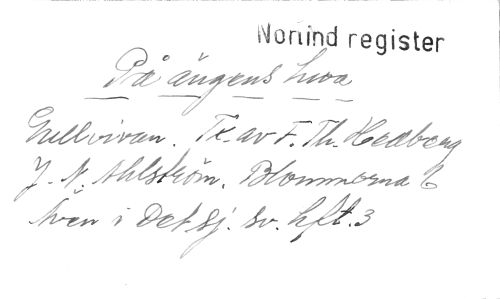 Norlind register
På ängens hwa
Gullvivan. Tx. av F. Th. Hedberg
J. N. Ahlström. Blommorna 6
Även i Det sj. sv. hft. 3